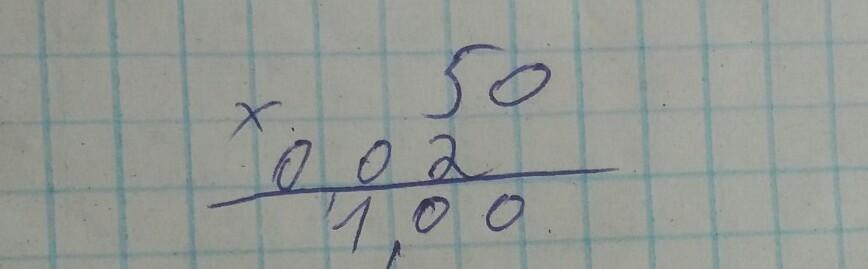 50
× 0 0 2
1,00